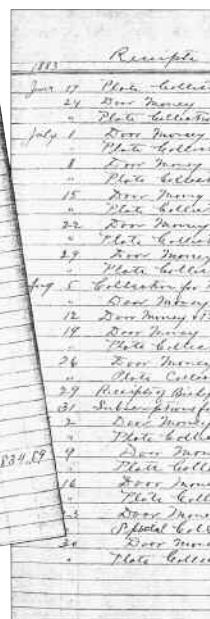 Receipts
1883
June 17 Plate Collec
24 Door Money
" Plate Collection
July 1 Door Money
" Plate Collec
8 Door Money
" Plate Collec
15 Door Money
" Plate Collec
22 Door Money
" Plate Collect
29 Door Money
" Plate Collec
Aug 5 Collection for
" Door Money
12 Door Money &
19 Door Money
" Plate Collec
26 Door Money
" Plate Collec
29 Receipts
31 Subscriptions f
2 Door Money
" Plate Collec
9 Door Mon
834.89
" Plate Coll
16 Door Mone
" Plate Coll
23 Door Mone
Special Coll
30 Door Mone
" Plate Collec